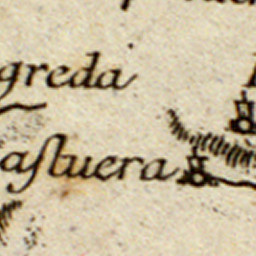 greda
aſtuera